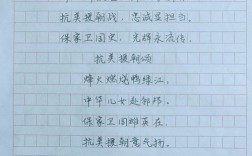 抗美援朝战，忠诚显担当。
保家卫国史，光辉永流传。
抗美援朝颂
烽火燃烧鸭绿江，
中华儿女赴邻邦。
保家卫国雄英在，
抗美援朝意气扬。